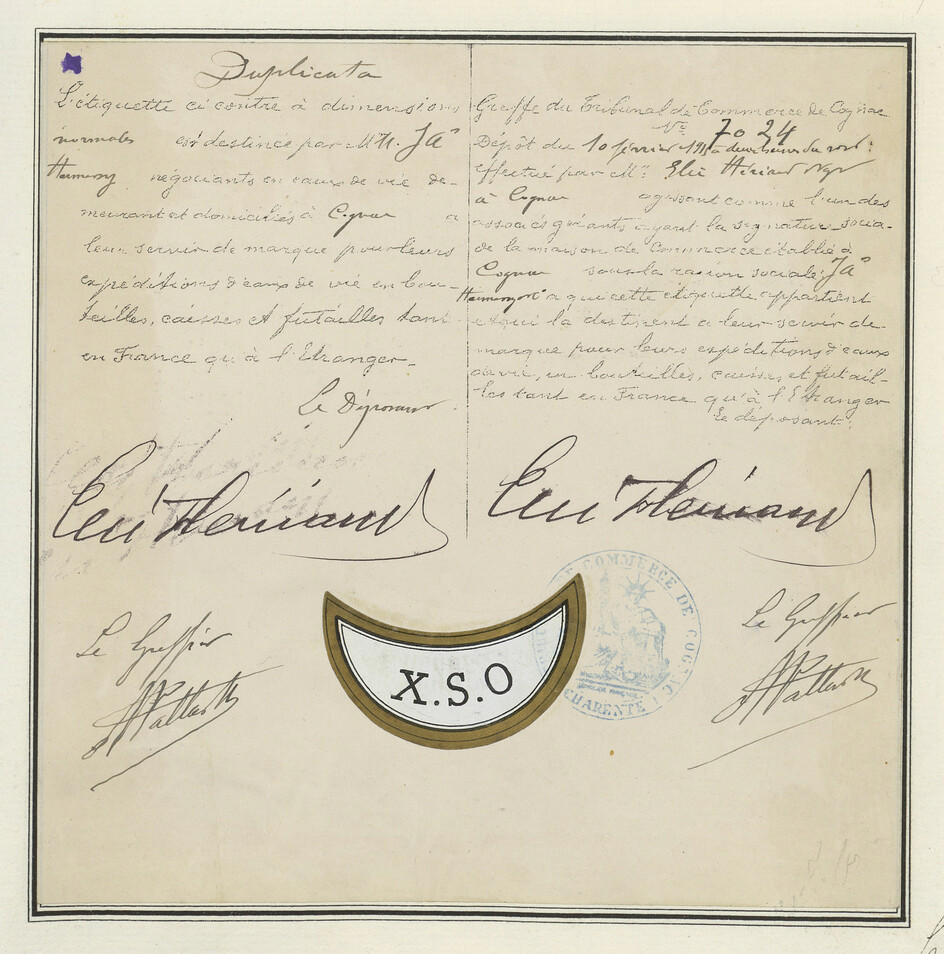 Duplicata
L'étiquette ci contre à dimensions
normales est destinée par MM. Jas
Hennessy négociants en eaux de vie de-
meurant et domiciliés à Cognac a
leur servir de marque pour leurs
expéditions d'eaux de vie en bou-
teilles, caisses et futailles tant
en France qu'à l'Etranger.
Le Déposant
Greffe du Tribunal de Commerce de Cognac
No 7024
Dépôt du 10 février
effectué par Mr. Elie Hériard
à Cognac agissant comme l'un des
associés gérants ayant la signature socia-
de la maison de Commerce établie à
Cognac sous la raison sociale: Jas
Hennessy a qui cette étiquette appartient
et qui la destinent a leur servir de
marque pour leurs expéditions d'eaux
de vie, en bouteilles, caisses, et futail-
les tant en France qu'à l'Etranger
le déposant.
Elie Hériard
Elie Hériard
Le Greffier
Le Greffier
X.S.O
DE COMMERCE DE COGNAC
CHARENTE